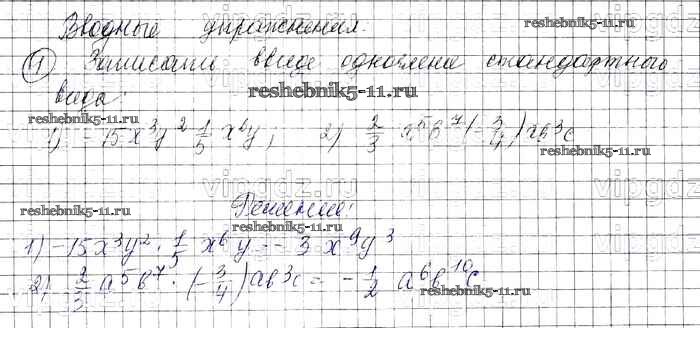 Вводные упражнения.
reshebnik5-11.ru
1) Записать ввиде одночлена стандартного
вида:
reshebnik5-11.ru
reshebnik5-11.ru
1) -15x³y² 1/5 x⁶y; 2) 2/3 a⁵b⁷(-3/4)ab³c
reshebnik5-11.ru
vipgdz.ru
Решение:
reshebnik5-11.ru
reshebnik5-11.ru
1) -15x³y² · 1/5 x⁶y = -3x⁹y³
2) 2/3 a⁵b⁷ · (-3/4)ab³c = -1/2 a⁶b¹⁰c
reshebnik5-11.ru